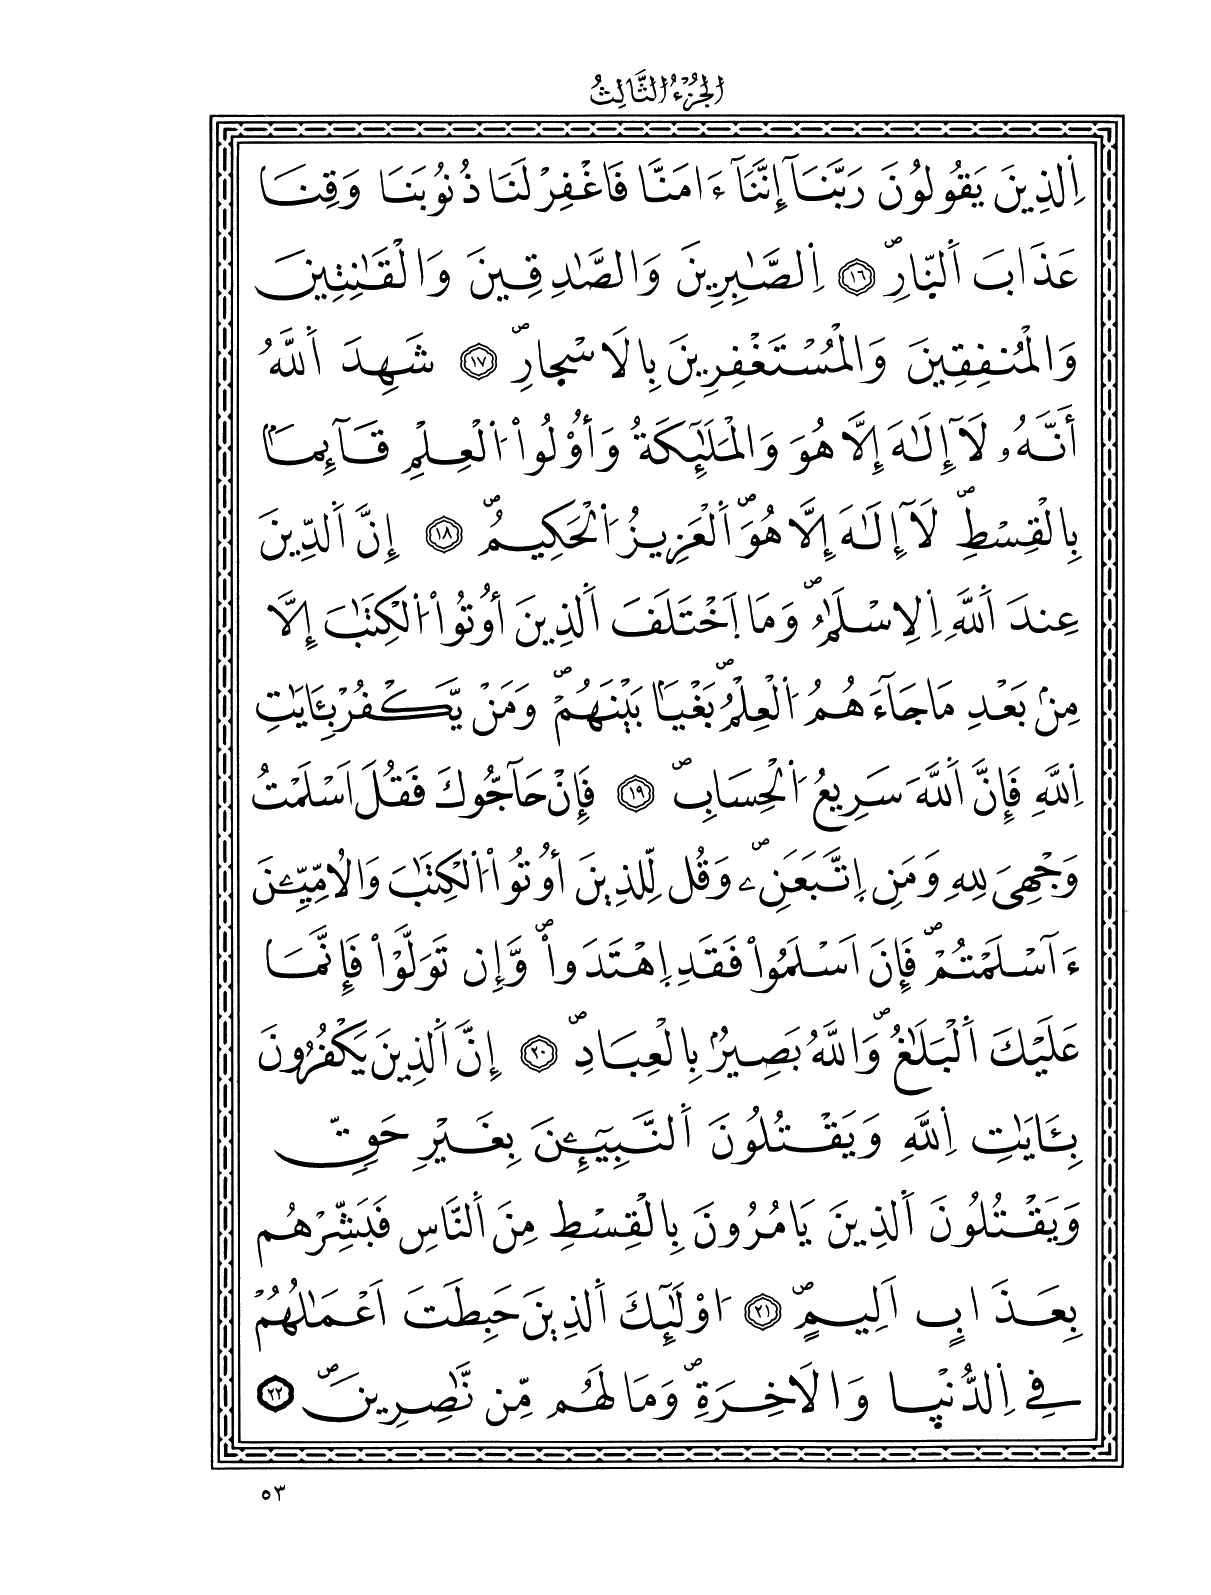 الجُزْءُ الثَّالِثُ
اِ۬لذِينَ يَقُولُونَ رَبَّنَآ إِنَّنَآ ءَامَنَّا فَاغْفِرْ لَنَا ذُنُوبَنَا وَقِنَا
عَذَابَ اَ۬لنّ۪ارِۖ ١٦ اِ۬لصَّٰبِرِينَ وَالصَّٰدِقِينَ وَالْقَٰنِتِينَ
وَالْمُنفِقِينَ وَالْمُسْتَغْفِرِينَ بِالَاسْح۪ارِۖ ١٧ شَهِدَ اَ۬للَّهُ
أَنَّهُۥ لَآ إِلَٰهَ إِلَّا هُوَ وَالْمَلَٰٓئِكَةُ وَأُوْلُواْ اُ۬لْعِلْمِ قَآئِماَۢ
بِالْقِسْطِۖ لَآ إِلَٰهَ إِلَّا هُوَۖ اَ۬لْعَزِيزُ اُ۬لْحَكِيمُۖ ١٨ إِنَّ اَ۬لدِّينَ
عِندَ اَ۬للَّهِ اِ۬لِاسْلَٰمُۖ وَمَا اَ۪خْتَلَفَ اَ۬لذِينَ أُوتُواْ اُ۬لْكِتَٰبَ إِلَّا
مِنۢ بَعْدِ مَا جَآءَهُمُ اُ۬لْعِلْمُۖ بَغْياَۢ بَيْنَهُمْۖ وَمَنْ يَّكْفُرْ بِـَٔايَٰتِ
اِ۬للَّهِ فَإِنَّ اَ۬للَّهَ سَرِيعُ اُ۬لْحِسَابِۖ ١٩ فَإِنْ حَآجُّوكَ فَقُلَ اَسْلَمْتُ
وَجْهِيَ لِلهِ وَمَنِ اِ۪تَّبَعَنِۦۖ وَقُل لِّلذِينَ أُوتُواْ اُ۬لْكِتَٰبَ وَالُامِّيِّـۧنَ
ءَآسْلَمْتُمْۖ فَإِنَ اَسْلَمُواْ فَقَدِ اِ۪هْتَدَواْۖ وَّإِن تَوَلَّوْاْ فَإِنَّمَا
عَلَيْكَ اَ۬لْبَلَٰغُۖ وَاللَّهُ بَصِيرُۢ بِالْعِبَادِۖ ٢٠ إِنَّ اَ۬لذِينَ يَكْفُرُونَ
بِـَٔايَٰتِ اِ۬للَّهِ وَيَقْتُلُونَ اَ۬لنَّبِيٓـِٕۧنَ بِغَيْرِ حَقّٖ
وَيَقْتُلُونَ اَ۬لذِينَ يَامُرُونَ بِالْقِسْطِ مِنَ اَ۬لنَّاسِ فَبَشِّرْهُم
بِعَذَابٍ اَلِيمٍۖ ٢١ اُوْلَٰٓئِكَ اَ۬لذِينَ حَبِطَتَ اَعْمَٰلُهُمْ
فِے اِ۬لدُّنْي۪ا وَالَاخِرَةِۖ وَمَا لَهُم مِّن نَّٰصِرِينَۖ ٢٢
٥٣